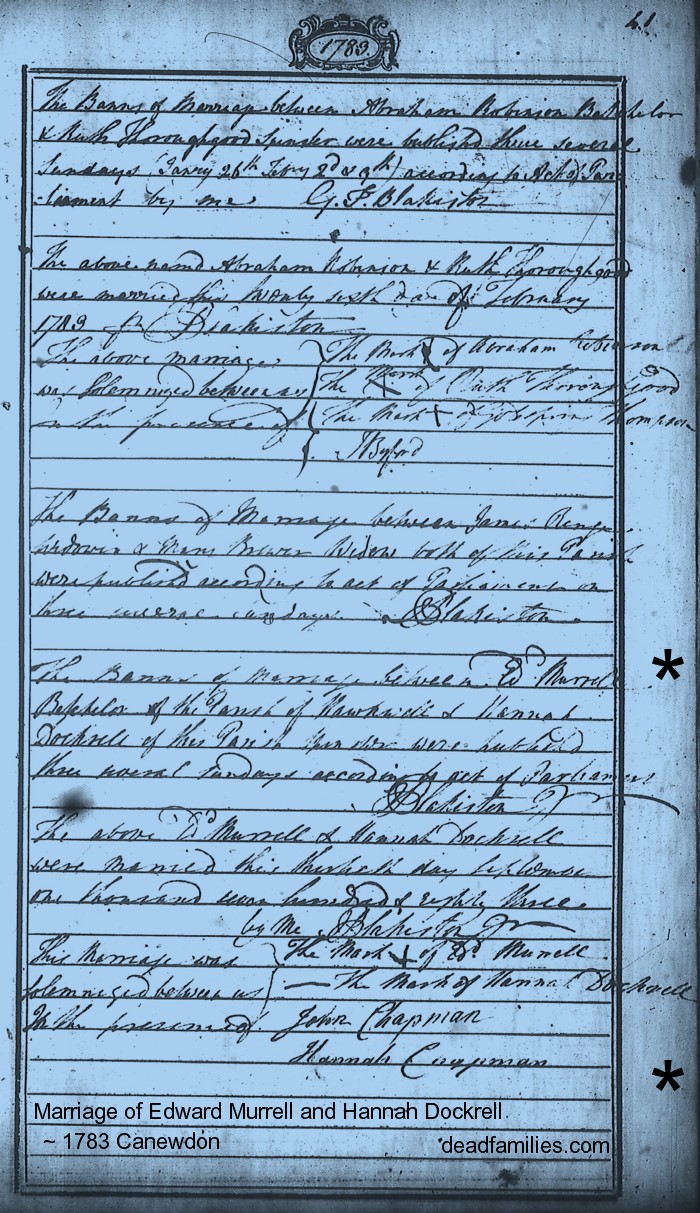 41
1783.
The Banns of Marriage between Abraham Robinson Batchelor
& Ruth Thoroughgood Spinster were published three several
Sundays (Janry 26th Febry 2d & 9th) according to Act of Par
-liament by me G. F. Blakiston
The above namd Abraham Robinson & Ruth Thoroughgood
were married this twenty sixth day of February
1783 Blakiston
The above marriage The Mark X of Abraham Robinson
was Solemnized between us The Mark X of Ruth Thoroughgood
in the presence of The Mark X of Thompson
J Byford
The Banns of Marriage between James
widower & Mary Brewer Widow both of this Parish
were published according to act of Parliament on
three several sundays. Blakiston
The Banns of Marriage between Ed Murrell
*
Batchelor of the Parish of Hawkwell & Hannah
Dockrell of this Parish Spinster were published
three several Sundays according to act of Parliament
Blakiston Jr
The above Edd Murrell & Hannah Dockrell
were married this thirtieth day September
one thousand seven hundred & eighty three.
by Me Blakiston Jr
This Marriage was The Mark X of Edd Murrell
Solemnized between us — The Mark of Hannah Dockrell
In the presence of John Chapman
Hannah Chapman
*
Marriage of Edward Murrell and Hannah Dockrell.
~ 1783 Canewdon
deadfamilies.com